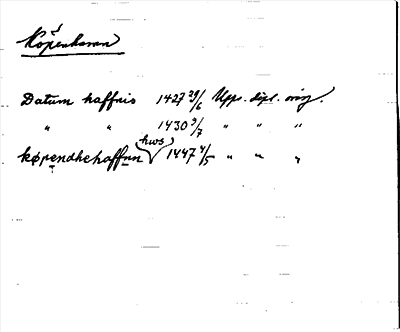 Köpenhamn
Datum haffnis 1427 29/6 Upps. dipl. orig.
" " 1430 9/7 " " "
hws
køpendhehaffnn 1447 4/5 " " "